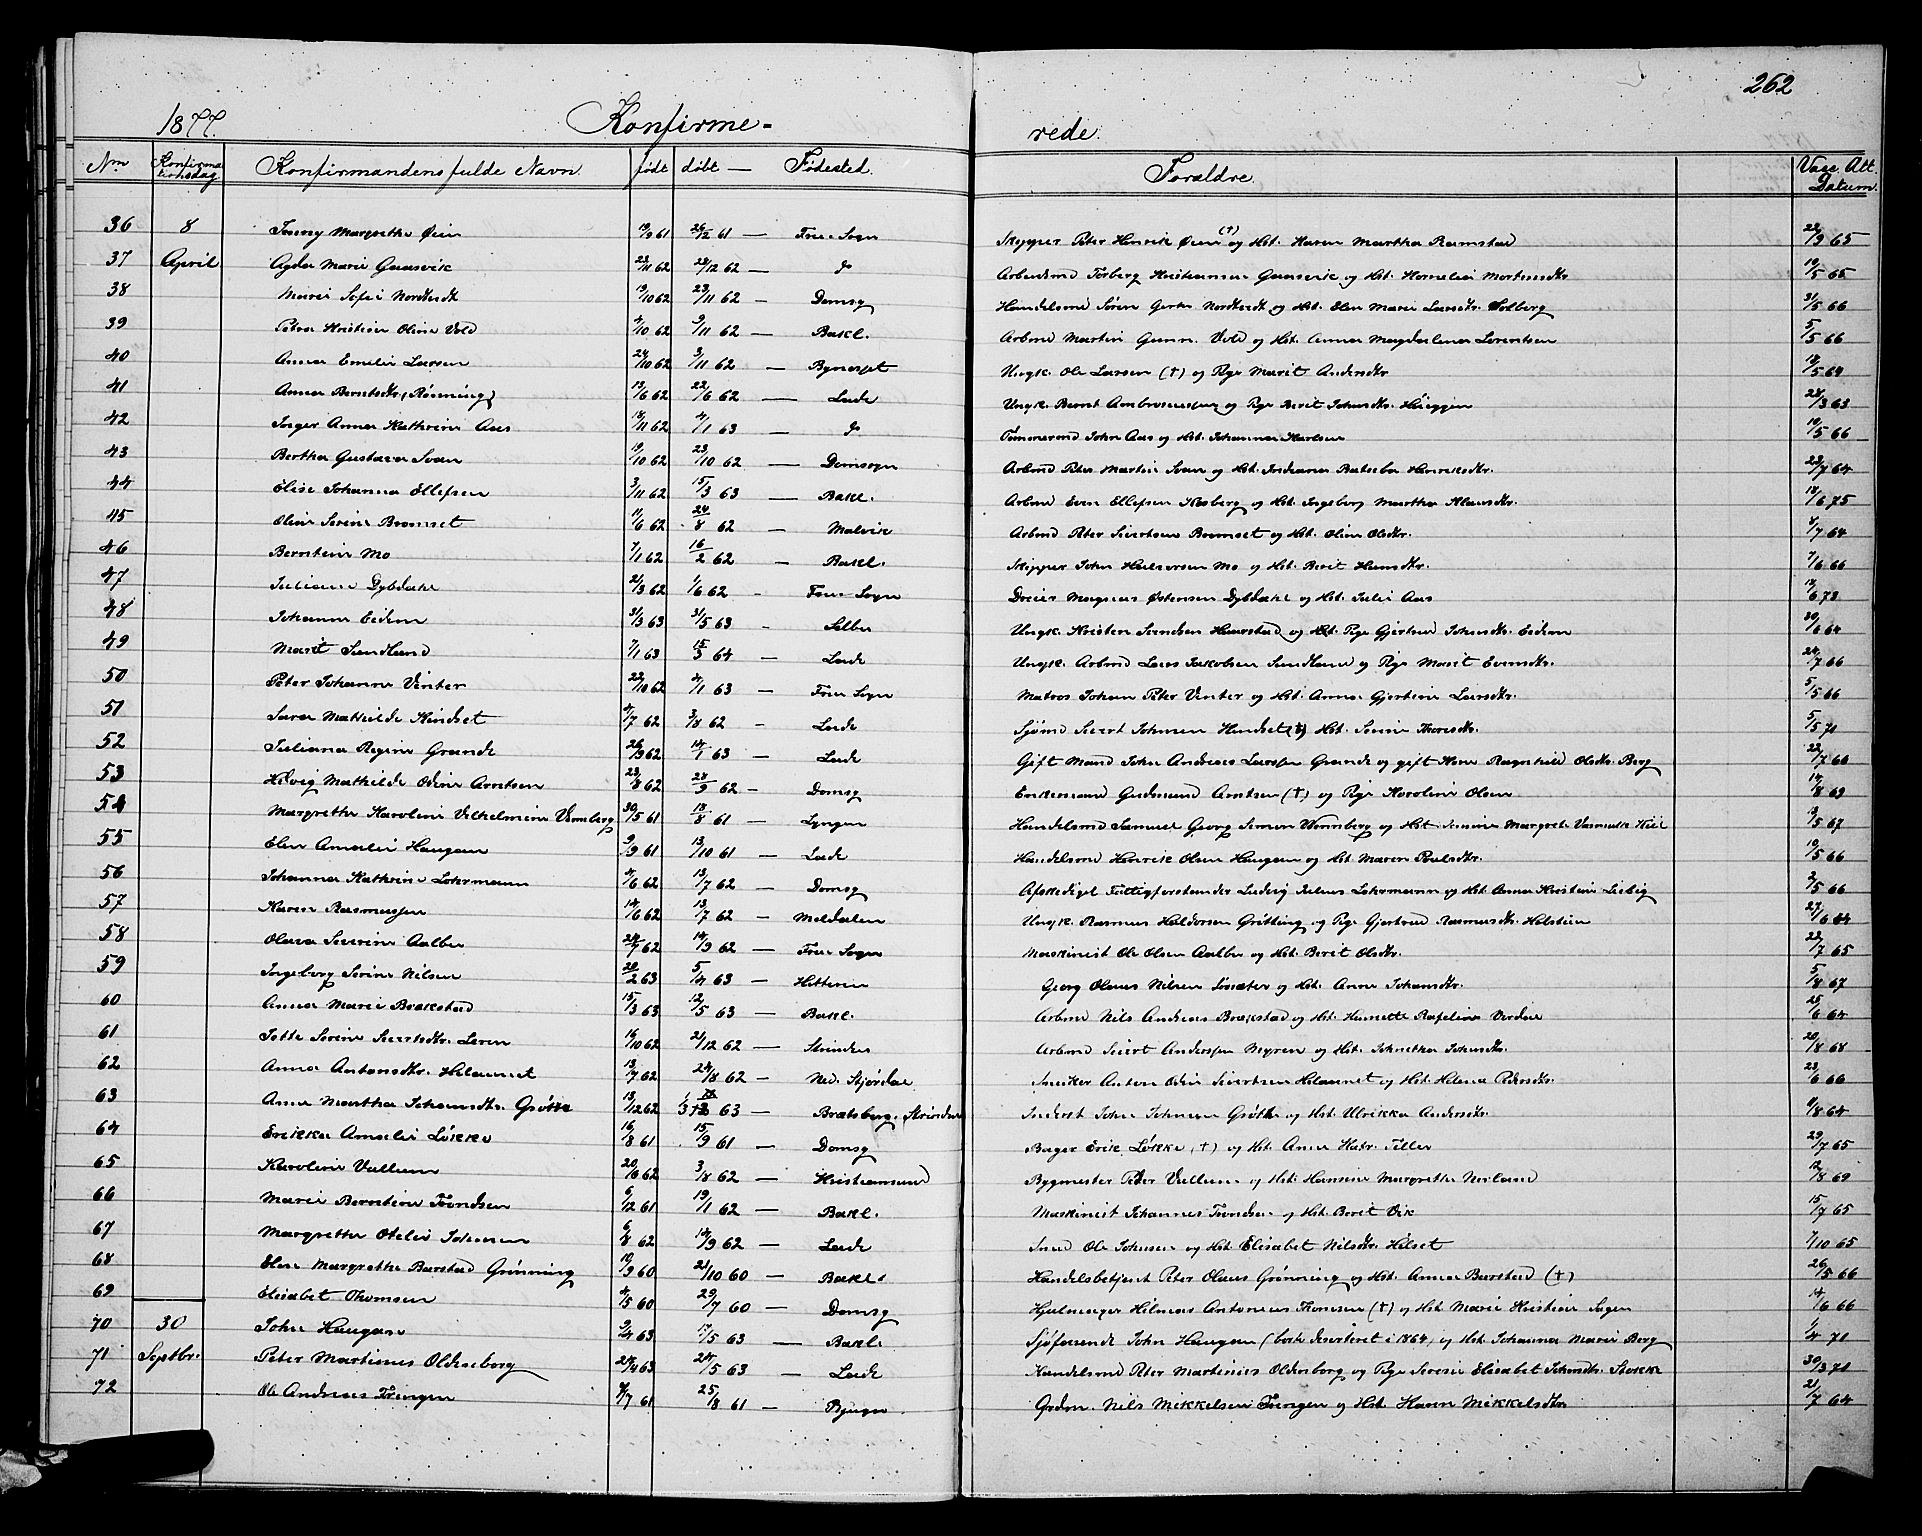 262
1877. Konfirme- rede.
Nm Konfirmationsdag Konfirmandens fulde Navn. født døbt — Fødested. Forældre. Vacc. Att. Datum.
36 8 Fanny Margrethe Øien 19/9 61 26/12 61 — Frue Sogn Skipper Peter Henrik Øien (†) og Hst. Karen Martha Ramstad 22/9 65
37 April Agda Marie Gaasvik 23/11 62 28/12 62 — do Arbeidsmd Torberg Kristiansen Gaasvik og Hst. Kornelia Mortensdtr 10/5 65
38 Marie Sofie Nordtvedt 19/10 62 23/11 62 — Domsg Handelsmd Søren Nordtvedt og Hst. Elen Marie Larsdtr. Solberg 31/5 66
39 Petra Kristine Oline Vold 4/10 62 9/11 62 — Bakl. Arbmd Martin Gunn. Vold og Hst. Anna Magdalena Lorentsen 5/5 66
40 Anna Emilie Larsen 24/10 62 3/11 62 — Bynesset Ungk. Ole Larsen (†) og Pge Marit Andersdtr 18/5 64
41 Anna Berntsdtr (Rønning) 13/6 62 22/6 62 — Lade Ungk. Bernt Ambrosiussen og Pge Berit Johnsdtr. Haugen 28/3 63
42 Inger Anna Kathrine Aas 18/11 62 4/1 63 — do Tømmermd John Aas og Hst. Johanna Karlsen 10/5 66
43 Bertha Gustava Svan 19/10 62 23/10 62 — Domsogn Arbmd Peter Martin Svan og Hst. Indiana Batseba Henriksdtr. 23/7 64
44 Elise Johanna Ellefsen 3/11 62 15/3 63 — Bakl. Arbmd Even Ellefsen Kosberg og Hst. Ingeborg Martha Klausdtr. 18/6 75
45 Oline Serine Bromset 11/6 62 24/8 62 — Malvik Arbmd Peter Sivertsen Bromset og Hst. Oline Olsdtr. 4/7 64
46 Berntine Mo 7/1 62 16/2 62 — Bakl. Skipper John Halvorsen Mo og Hst. Berit Hansdtr. 7/6 66
47 Juliane Dybdahl 21/3 62 1/6 62 — Frue Sogn Dreier Magnus Østensen Dybdahl og Hst. Julie Aas 12/6 73
48 Johanna Eidem 31/3 63 31/5 63 — Selbu Ungk. Kristen Svendsen Haarstad og Pge Gjertrud Johnsdtr. Eidem 30/6 64
49 Marit Sundland 7/1 63 15/3 64 — Lade Ungk. Arbmd Lars Jakobsen Sundland og Pge Marit Evensdtr. 24/7 66
50 Peter Johanna Vinter 22/10 62 4/1 63 — Frue Sogn Matros Johan Peter Vinter og Hst. Anna Gjertine Larsdtr. 5/5 66
51 Sara Mathilde Hindset 4/7 62 3/8 62 — Lade Sjømd Sivert Johnsen Hindset (†) Hst. Serine Thoresdtr. 5/5 71
52 Juliana Regine Grande 26/9 62 14/1 63 — Lade Gift Mand John Andreas Larsen Grande og gift Kone Ragnhild Olsdtr. Berg 22/7 66
53 Hedvig Mathilde Odine Arntsen 23/8 62 28/9 62 — Domsg Enkemand Gudmund Arntsen (†) og Pge Karoline Olsen 14/8 63
54 Margrethe Karoline Vilhelmine Vennberg 30/5 61 18/8 61 — Lyngen Handelsmd Samuel Georg Simon Wennberg og Hst Margrete Kiil 19/5 67
55 Elen Amalie Haugan 9/9 61 13/10 61 — Lade Handelsmd Henrik Olsen Haugan og Hst. Maren Paulsdtr. 10/5 66
56 Johanna Kathrine Lohrmann 4/6 62 13/7 62 — Domsg Afskediget Fattigforstander Ludvig Julius Lohrmann og Hst. Anna Kristine Liebig 2/5 66
57 Karen Rasmussen 14/6 62 13/7 62 — Meldalen Ungk. Rasmus Haldorsen Grøtting og Pge Gjertrud Rasmusdtr. Holstein 27/6 64
58 Olava Severine Aalbu 24/7 62 14/9 62 — Frue Sogn Maskinist Ole Olsen Aalbu og Hst. Berit Olsdtr. 22/7 65
59 Ingeborg Serine Nilsen 20/2 63 5/4 63 — Hitteren Georg Olaus Nilsen og Hst. Anne Johansdtr. 5/8 67
60 Anna Marie Brækstad 15/3 63 12/5 63 — Bakl. Arbmd Nils Andreas Brækstad og Hst. Hanette Rafaline Verdal 25/6 64
61 Jette Serine Sivertsdtr. Leren 16/10 62 21/12 62 — Strinden Arbmd Sivert Andersen Myren og Hst. Johnetha Johnsdtr. 20/8 68
62 Anna Antonsdtr. Helaunet 13/7 62 24/8 62 — Ned. Stjørdal Snedker Anton Odin Sivertsen Helaunet og Hst. Helena Pedersdtr. 23/6 66
63 Anne Martha Johnsdtr. Grøtte 13/12 62 63 — Bratsberg. Strinden Inderst John Johnsen Grøtte og Hst. Ulrikka Andersdtr. 11/8 64
64 Erikka Amalie Løkke 16/8 61 15/9 61 — Domsg Bager Erik Løkke (†) og Hst. Anne Katr. Tiller 29/7 65
65 Karoline Vullum 20/6 62 3/8 62 — Kristiansund Bygmester Peter Vullum og Hst. Hansine Margrethe Nerland 12/8 69
66 Marie Berntine Trondsen 6/12 61 19/1 62 — Bakl. Maskinist Johannes Trondsen og Hst. Berit Vik 15/7 65
67 Margrethe Otelie Johnsen 6/8 62 14/9 62 — Lade Smed Ole Johnsen og Hst Elisabet Nilsdtr. Hilset 7/10 65
68 Elen Margrethe Barstad Grønning 10/9 60 21/10 60 — Bakl. Handelsbetjent Peter Olaus Grønning og Hst. Anna Barstad (†) 26/5 66
69 Elisabet Thomsen 4/5 60 29/7 60 — Domsg Hjulmager Hilmar Antonius Thomsen (†) og Hst Marie Kristine 14/6 66
70 30 John Haugan 9/4 63 17/5 63 — Bakl. Sjøfarende John Haugan (bort deserteret i 1864) og Hst. Johanna Marie Berg 1/4 71
71 Septbr. Peter Martinus Oldenborg 24/4 63 24/5 63 — Lade Handelsmd Peter Martinus Oldenborg og Pge Serine Elisabet Johnsdtr. Stokke 30/3 71
72 Ole Andreas Trengen 4/7 61 25/8 61 — Bjugn Grdm. Nils Mikkelsen Trengen og Hst. Karen Mikkelsdtr 21/7 64